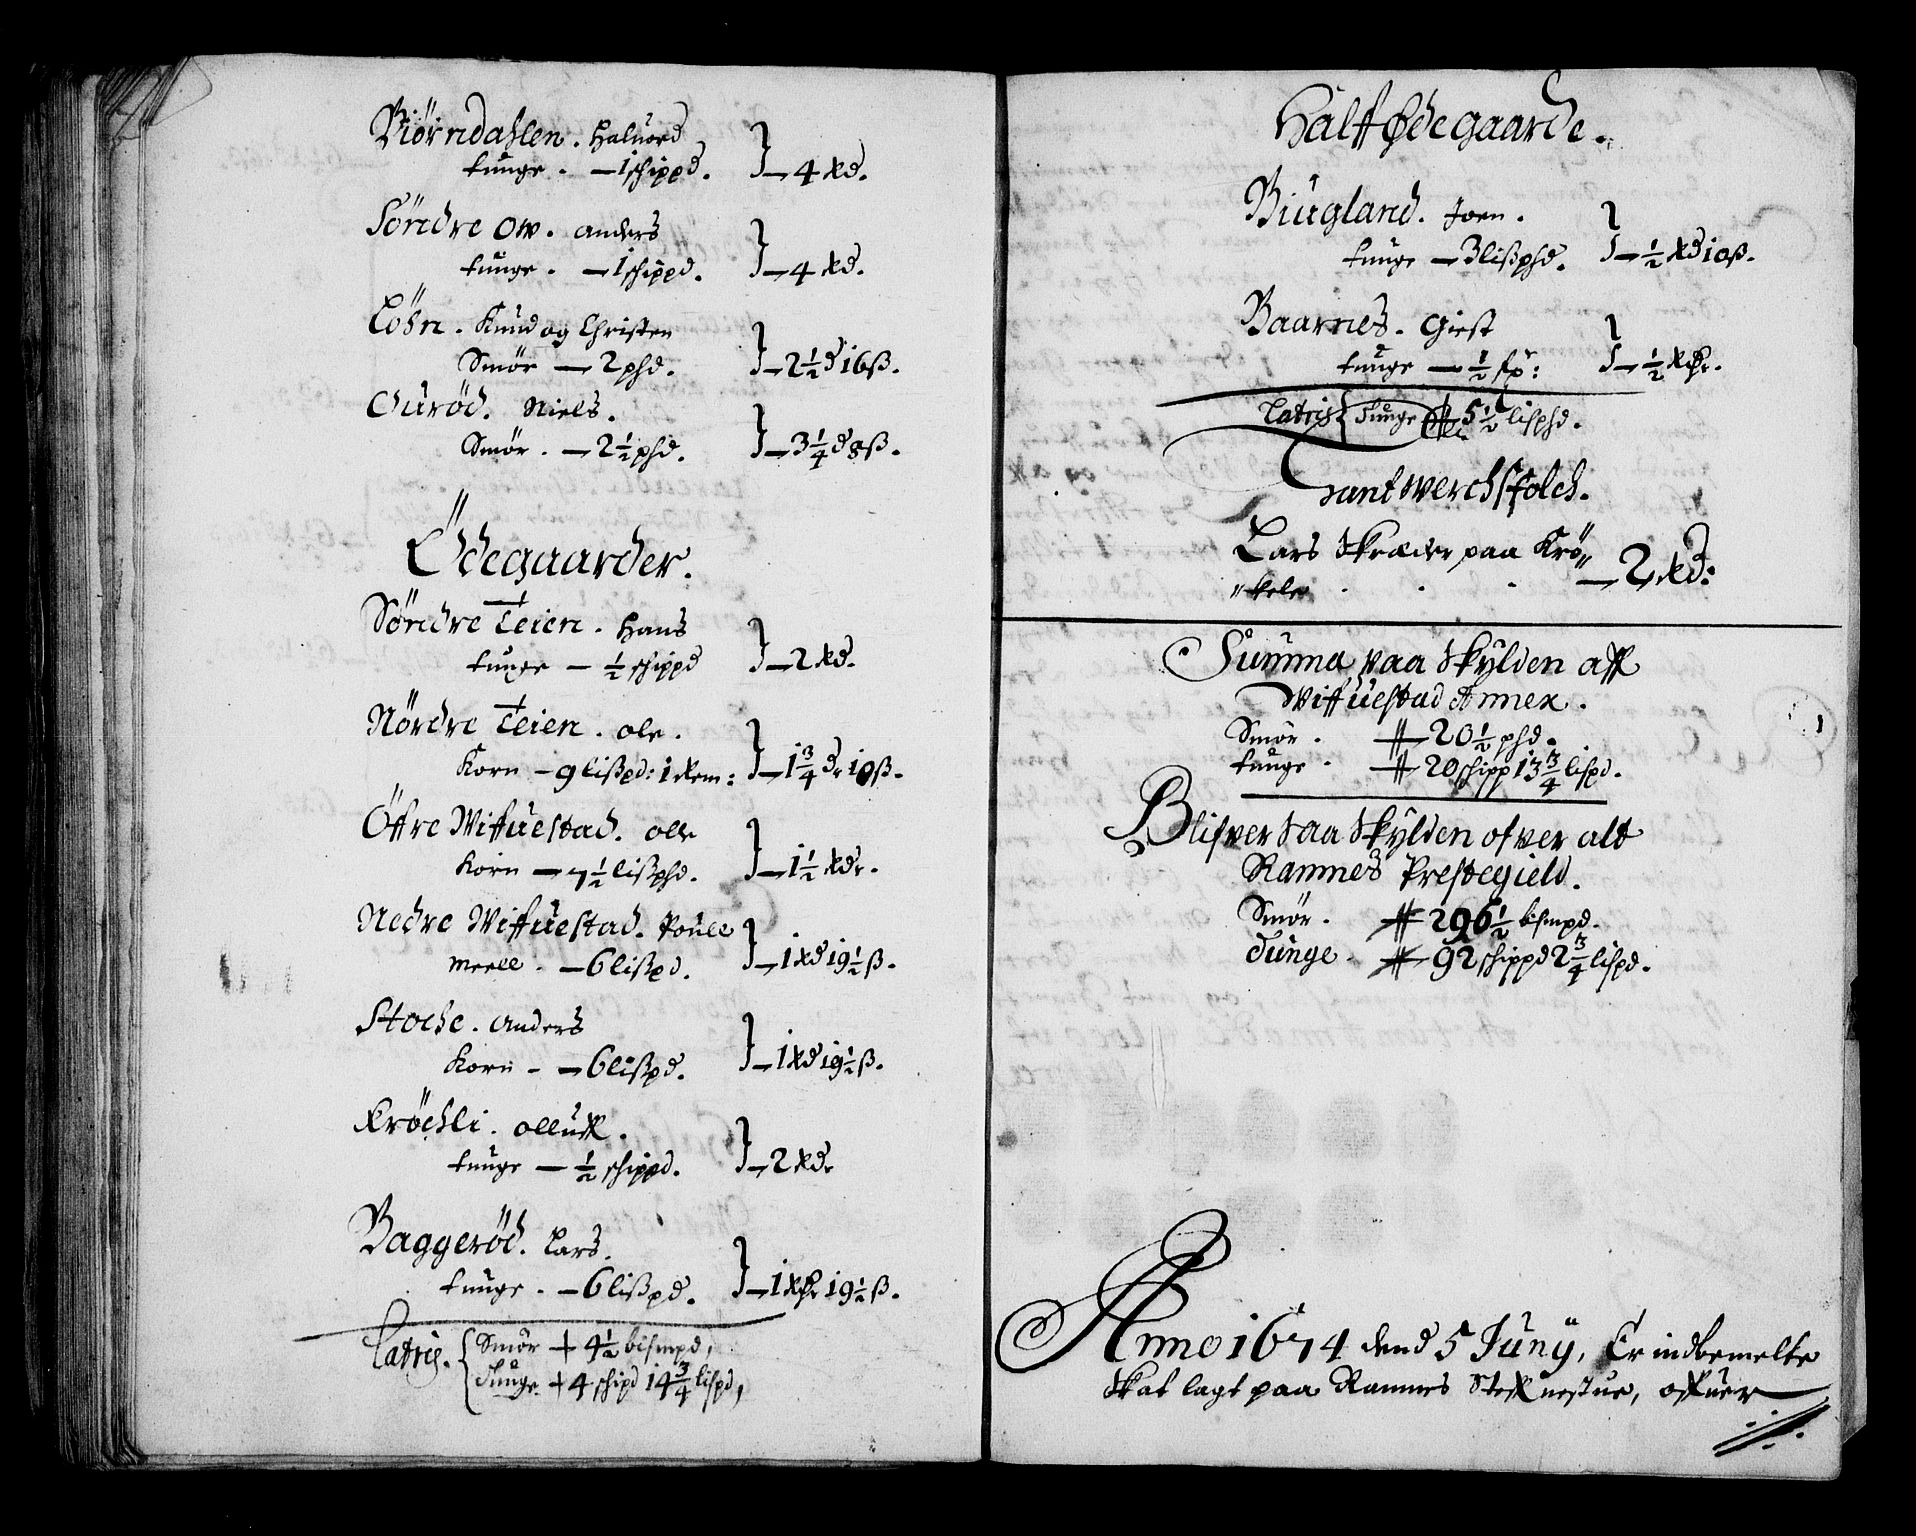 Biörndahlen. Haluord
tunge. — 1 schippd. } — 4 Rd.
Söndre ow. anders
tunge. — 1 schippd. } — 4 Rd.
Löhn. Knud og Christen
Smör — 2 phd. } — 2½ d 16ß.
Ouröd. Niels.
Smör. — 2½ phd. } — 3¼ d 8ß.
Ödegaarder.
Söndre Teien. Hans
tunge — ½ schippd } — 2 Rd.
Nördre Teien. ole.
Korn — 9 lißpd: 1 Rem: } — 1¾ dr 10ß.
Öfre Wiffuestad. ole
Korn — 7½ lißphd. } — 1½ Rdr.
Nedre Wiffuestad. Poule
meell. — 6 lißpd. } — 1 Rd 19½ ß.
Stoche. Anders
Korn — 6 lißpd. } — 1 Rd 19½ ß.
Kröchli. olluff.
tunge — ½ schippd. } — 2 Rdr
Baggeröd. Lars.
tunge. — 6 lißpd. } — 1 Rdr 19½ ß.
Latris. { Smör + 4½ bismpd,
Tunge + 4 schipd 14¾ lispd,
Halff Ødegaarde.
Biugland. Joen.
tunge — 3 lißphd. } — ½ Rd 10ß.
Baarnes. Giest
tunge — ½ sp: } — ½ Rdr.
Latris { Tunge 5½ lisphd.
Hantwerchsfolch.
Lars Skræder paa Krö-
"kele . . . — 2 Rd:
Summa paa Skylden aff
Wiffuestad Annex.
Smör. 20½ phd.
tunge. 20 schipp 13¾ lispd.
Blifver saa Skylden ofver alt
Ramnes Prestegield.
Smör. 296½ bismpd.
Tunge. 92 schippd 2¾ lispd.
Anno 1674 dend 5 Juny, Er indbemelte
Skat lagt paa Ramnes Steffnestue, offuer